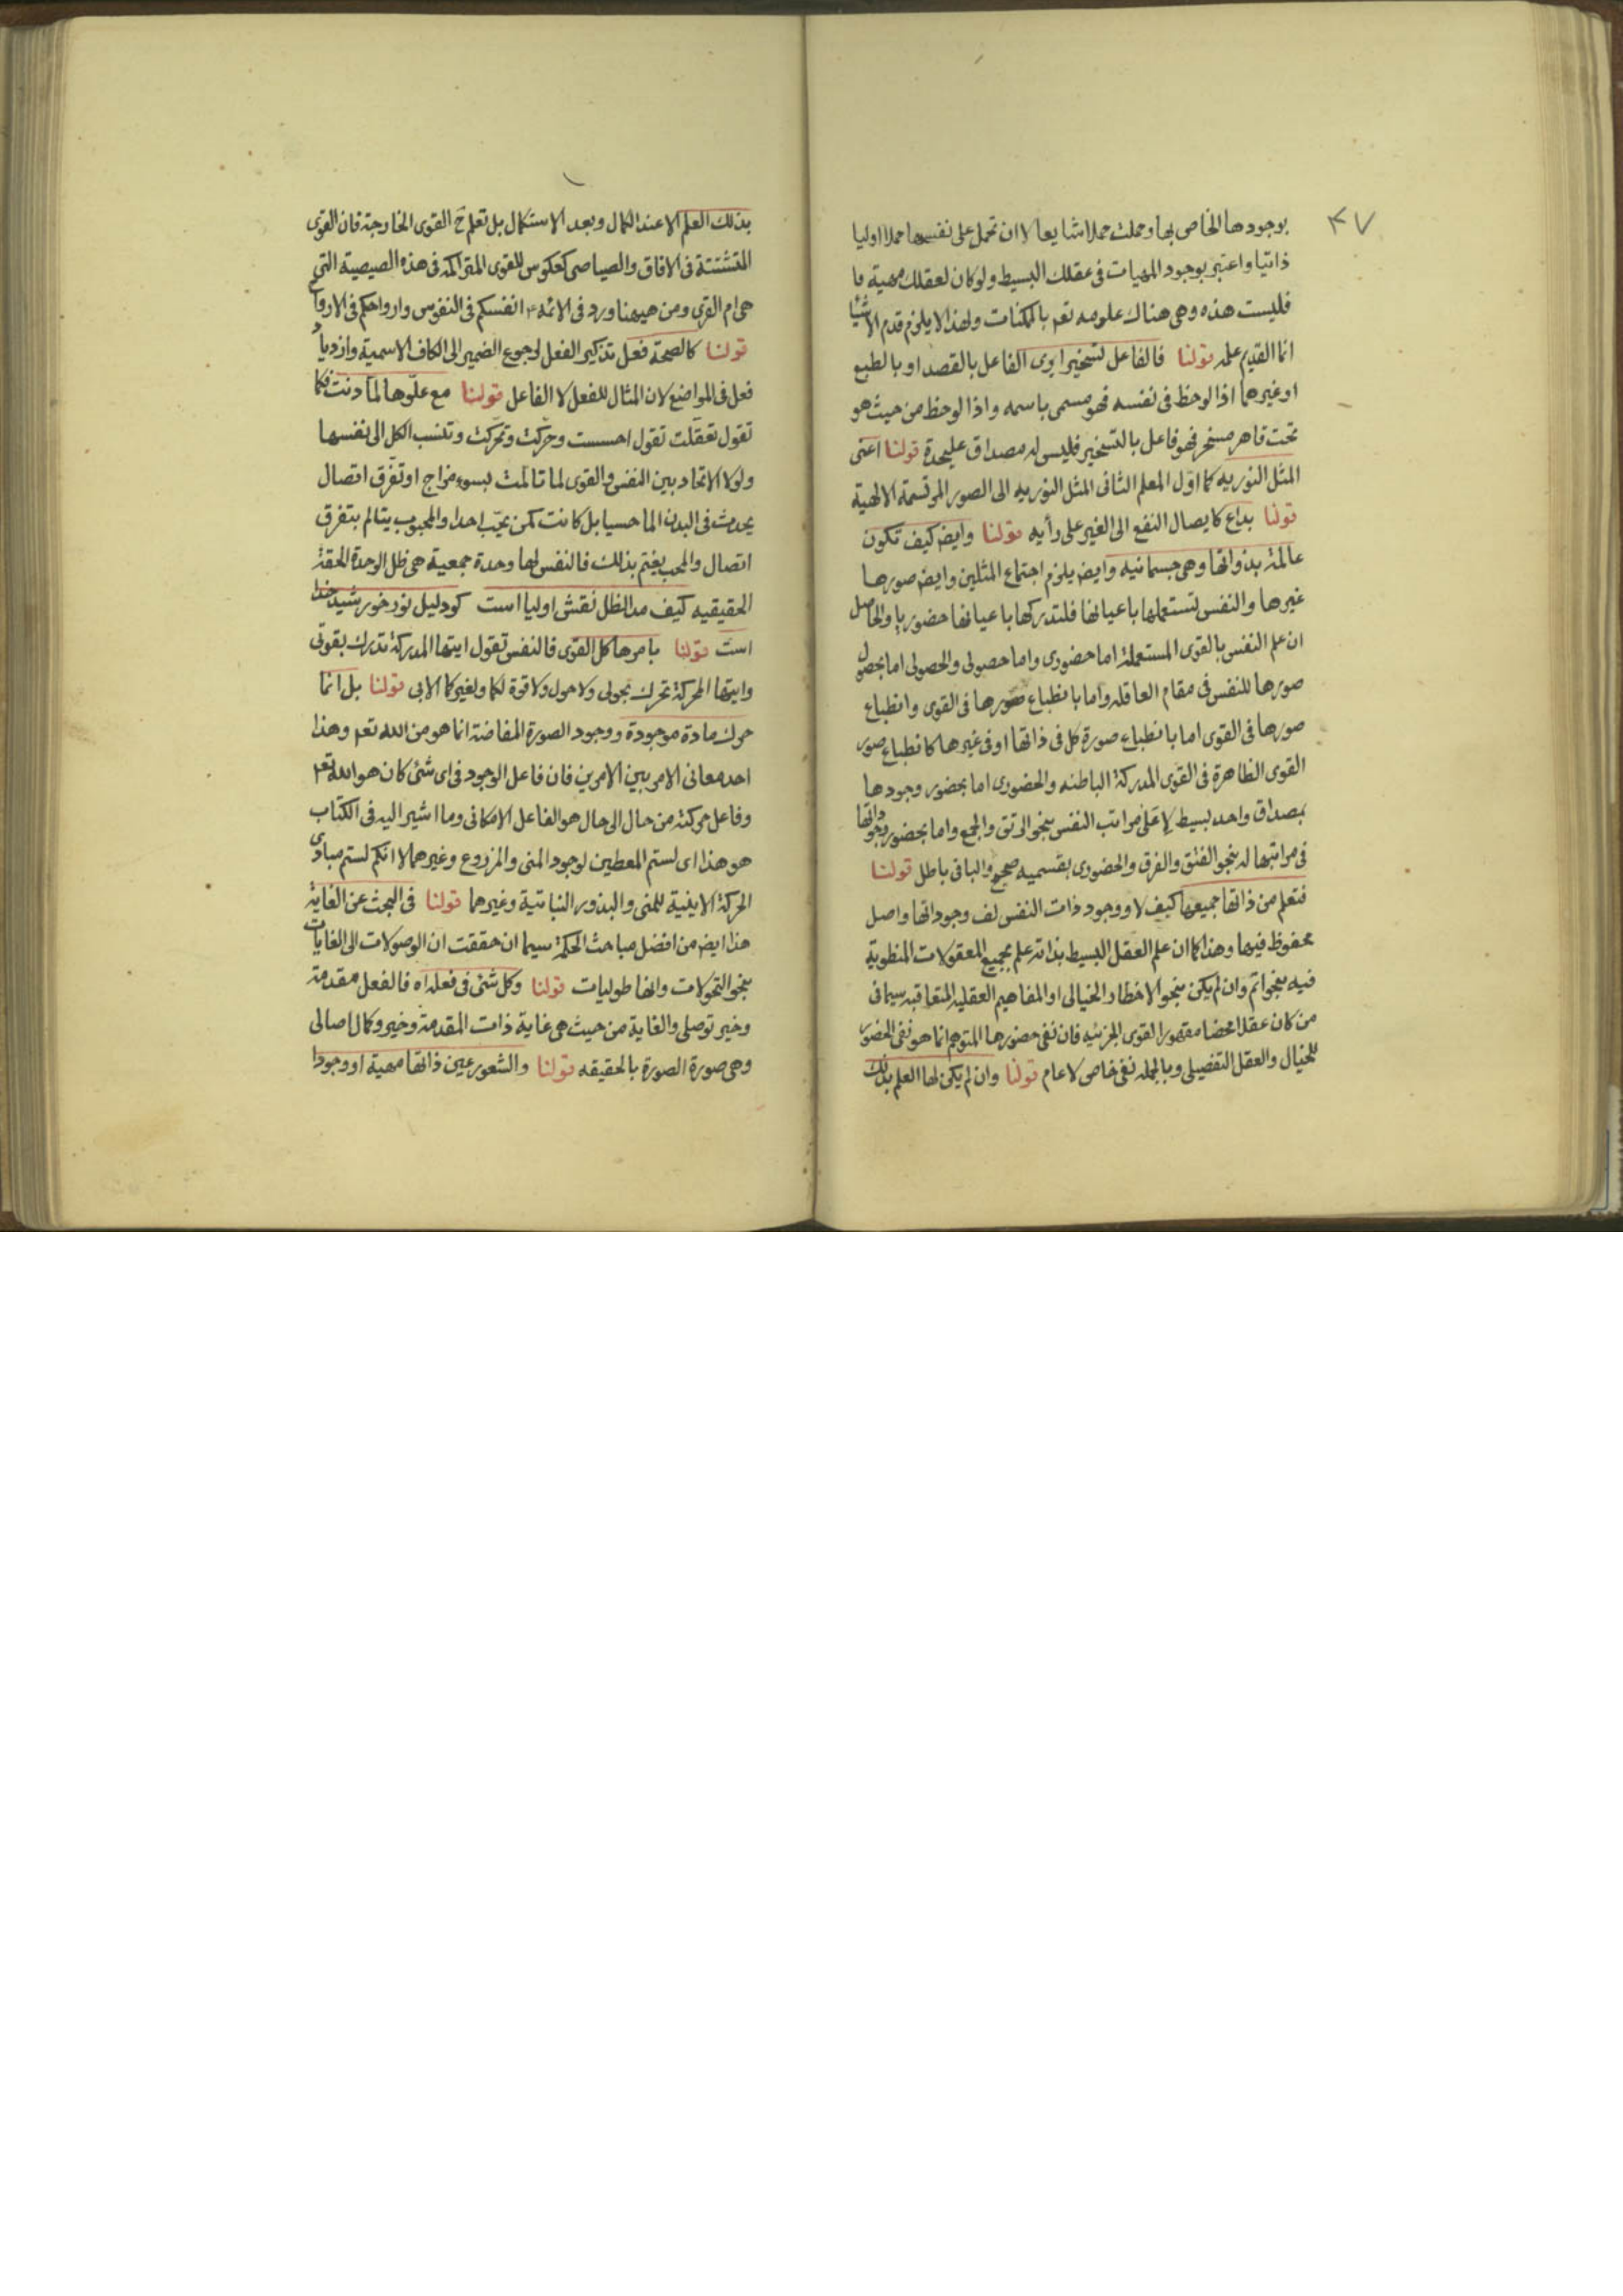 ٣٧
بوجودها الخاص بها وحملت حملا شايعا لا ان تحمل على نفسها حملا اوليا
ذاتيا واعتبر بوجود المهيات فى عقلك البسيط ولو كان لعقلك مهية ما
فليست هذه وهى هناك علومه تعم بالممكنات ولهذا لا يلزم قدم الاشيا
انما القديم علمه قولنا فالفاعل لتسخير اوى الفاعل بالقصد او بالطبع
او غيرهما اذا لوحظ فى نفسه فهو مسمى باسمه واذا لوحظ من حيث هو
تحت قاهر مسخر فهو فاعل بالتسخير فليس له مصداق عليحدة قولنا اعنى
المثل النوريه كما اول المعلم الثانى المثل النوريه الى الصور المرتسمة الالهية
قولنا بداع كايصال النفع الى الغير على رأيه قولنا وايض كيف تكون
عالمة بذواتها وهى جسمانيه وايض يلزم اجتماع المثلين وايض صورها
غيرها والنفس تستعملها باعيانها فلتدركها باعيانها حضوريا والحاصل
ان علم النفس بالقوى المستعملة اما حضورى واما حصولى والحصولى اما بحصول
صورها للنفس فى مقام العاقله واما بانطباع صورها فى القوى وانطباع
صورها فى القوى اما بانطباع صورة كل فى ذاتها او فى غيرها كانطباع صور
القوى الظاهرة فى القوى المدركة الباطنه والحضورى اما بحضور وجودها
بمصداق واحد بسيط لا على مراتب النفس بنحو الرتق والجمع واما بحضور وجوداتها
فى مراتبها له بنحو الفتق والفرق والحضورى بقسميه صحيح والباقى باطل قولنا
فتعلم من ذاتها جميعها كيف لا ووجود ذات النفس لف وجوداتها واصل
محفوظ فيها وهذا كما ان علم العقل البسيط بذاته علم بجميع المعقولات المنطوية
فيه بنحو اتم وان لم يكن بنحو الاخطار الخيالى او المفاهيم العقليه المتعاقبه سيما فى
من كان عقلا محضا مقهور القوى الجزئيه فان نفى حضورها المتوهم انما هو نفى الحضور
للخيال والعقل التفصيلى وبالجمله نفى خاص لا عام قولنا وان لم يكن لها العلم بذلك
بذلك العلم الا عند الكمال وبعد الاستكمال بل تعلم ح القوى الخارجة فان القوى
المتشتتة فى الافاق والصياصى كعكوس للقوى المتراكمه فى هذه الصيصية التى
هى ام القرى ومن هيهنا ورد فى الائمه انفسكم فى النفوس وارواحكم فى الارواح
قولنا كالصحة فعل تذكير الفعل لرجوع الضمير الى الكاف الاسمية وازدياد
فعل فى المواضع لان المثال للفعل لا الفاعل قولنا مع علوها لما دنت فكما
تقول تعقلت تقول احسست وحركت وتحركت وتنسب الكل الى نفسها
ولولا الاتحاد بين النفس والقوى لما تالمت لسوء مزاج او تفرق اتصال
يحدث فى البدن الما حسيا بل كانت كمن يحب احدا والمحبوب يتالم بتفرق
اتصال والمحب يغتم بذلك فالنفس لها وحدة جمعية هى ظل الوحدة الحقة
الحقيقيه كيف مد الظل نقش اوليا است كو دليل نور خورشيد خدا
است قولنا بامرها كل القوى فالنفس تقول ايتها المدركة تدرك بقوتى
وايتها المحركة تحرك بحولى ولا حول ولا قوة لكما ولغيركما الا بى قولنا بل انما
حرك مادة موجودة ووجود الصورة المفاضة انما هو من الله تعم وهذا
احد معانى الامر بين الامرين فان فاعل الوجود فى اى شئ كان هو الله تعم
وفاعل حركته من حال الى حال هو الفاعل الامكانى وما اشير اليه فى الكتاب
هو هذا اى لستم المعطين لوجود المنى والمزروع وغيرهما لا انكم لستم مبادى
الحركة الاينية للمنى والبذور النباتية وغيرهما قولنا فى البحث عن الغاية
هذا ايض من افضل مباحث الحكمة سيما ان حققت ان الوصولات الى الغايات
بنحو التحولات وانها طوليات قولنا وكل شئ فى فعله اه فالفعل مقدمة
وخير توصلى والغاية من حيث هى غاية ذات المقدمة وخير وكمال اصالى
وهى صورة الصورة بالحقيقه قولنا والشعور عين ذاتها مهية او وجودا